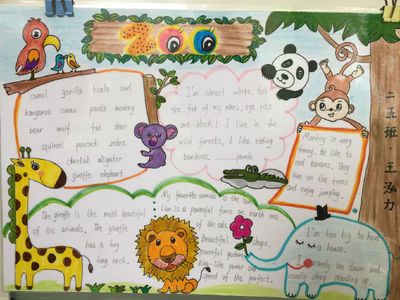 ZOO
camel gorilla koala owl
kangaroo swan panda monkey
bear wolf fox deer
squirrel peacock zebra
cheetah alligator
giraffe elephant
I'm almost white, but
the fur of my ears, eye pits
are black! I live in the
wild forests, I like eating
bamboos. ......panda
Monkey is very
funny. He like to
eat banana. They
live on the trees
and enjoy jumping.
二五班 王泓力
The giraffe is the most beautiful
of the animals. The giraffe
has a long
long neck.
My favorite animals is the lion.
Lion is a powerful force on earth one
of the cats.
Beautiful shape,
powerful
King-like power and
speed of the perfect.
I'm too big to have
a house.
I rarely lie down and
usually sleep standing up.